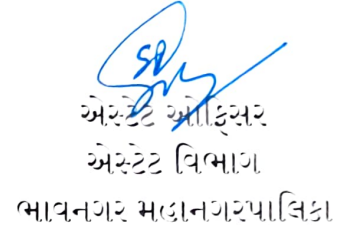 એસ્ટેટ ઓફિસર
એસ્ટેટ વિભાગ
ભાવનગર મહાનગરપાલિકા